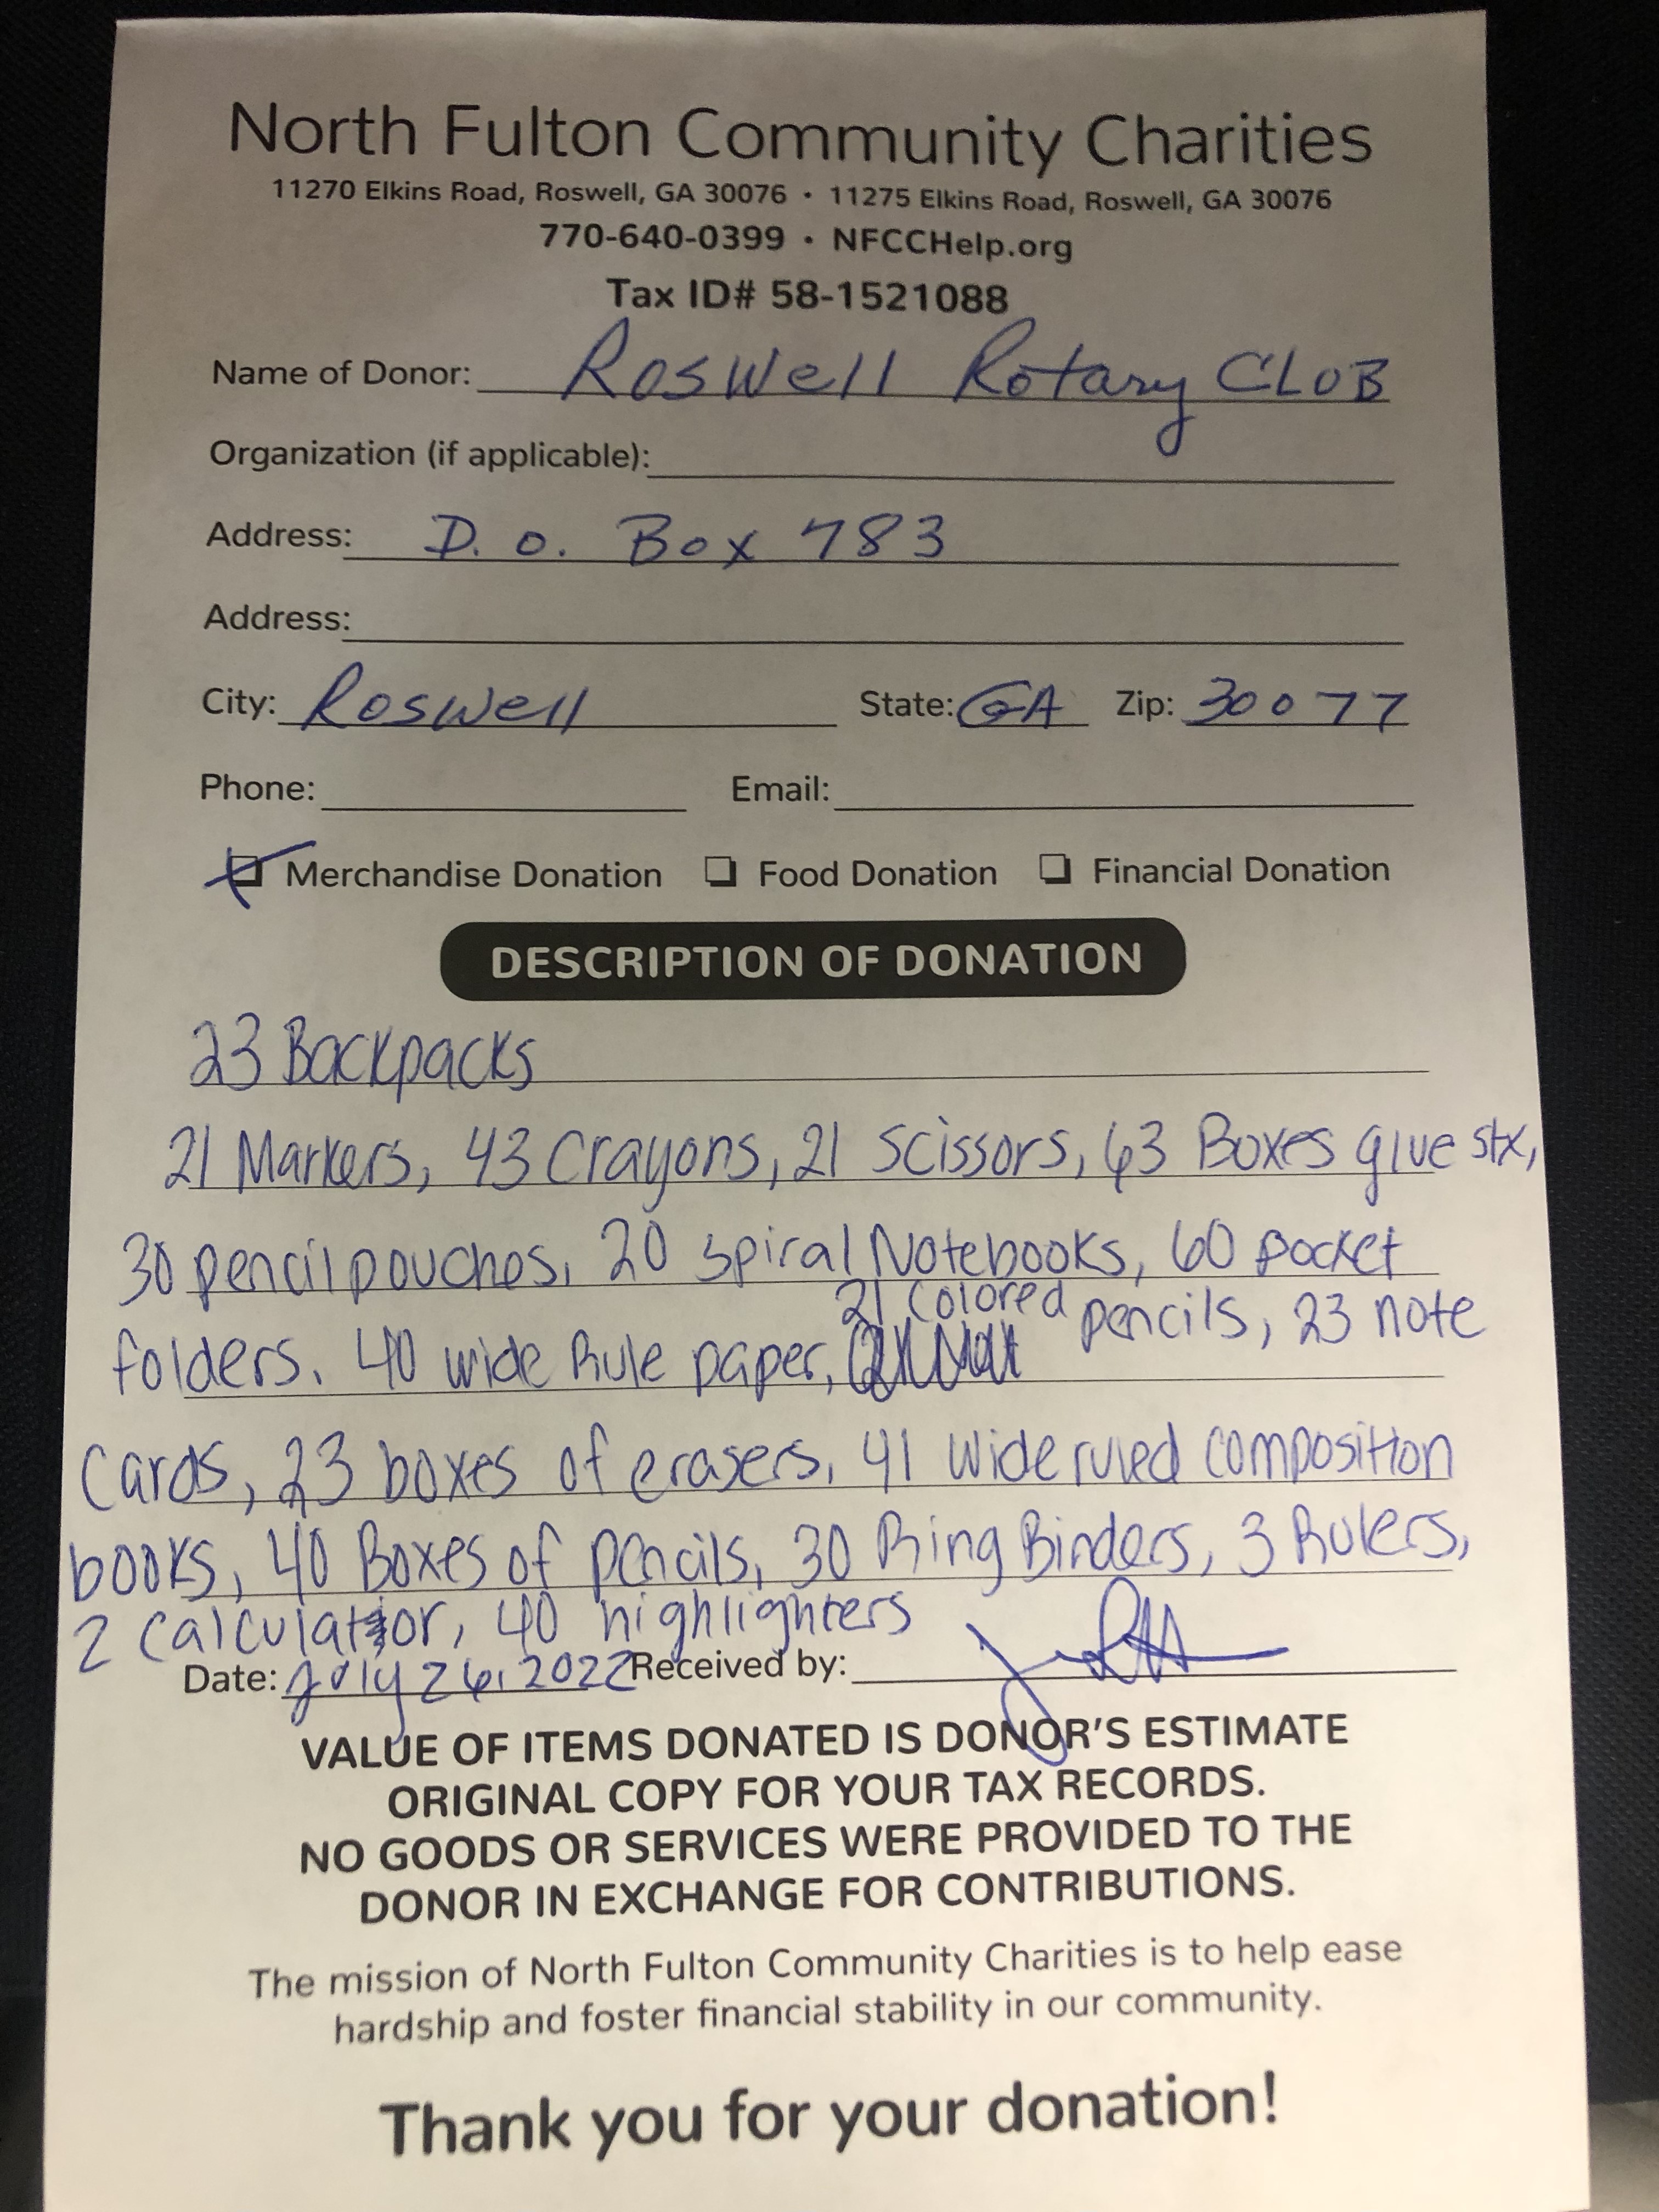 North Fulton Community Charities
11270 Elkins Road, Roswell, GA 30076 • 11275 Elkins Road, Roswell, GA 30076
770-640-0399 • NFCCHelp.org
Tax ID# 58-1521088
Name of Donor: Roswell Rotary CLUB
Organization (if applicable):
Address: P. O. Box 783
Address:
City: Roswell State: GA Zip: 30077
Phone: Email:
Merchandise Donation Food Donation Financial Donation
DESCRIPTION OF DONATION
23 Backpacks
21 Markers, 43 Crayons, 21 Scissors, 63 Boxes glue stx,
30 pencil pouches, 20 spiral Notebooks, 60 pocket
folders. 40 wide Rule paper, 21 Colored pencils, 23 note
Cards, 23 boxes of erasers, 41 wide ruled composition
books, 40 Boxes of pencils, 30 Ring Binders, 3 Rulers,
2 Calculator, 40 highlighters
Date: July 26, 2022 Received by:
VALUE OF ITEMS DONATED IS DONOR'S ESTIMATE
ORIGINAL COPY FOR YOUR TAX RECORDS.
NO GOODS OR SERVICES WERE PROVIDED TO THE
DONOR IN EXCHANGE FOR CONTRIBUTIONS.
The mission of North Fulton Community Charities is to help ease
hardship and foster financial stability in our community.
Thank you for your donation!